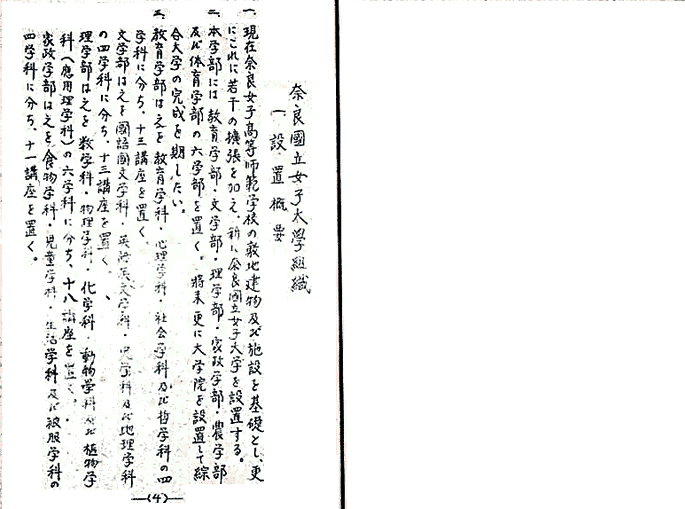 奈良國立女子大学組織
一 設置概要
一、現在奈良女子高等師範学校の敷地建物及び施設を基礎とし、更
にこれに若干の擴張を加え、新に奈良國立女子大学を設置する。
二、本学部には教育学部・文学部・理学部・家政学部・農学部
及び体育学部の六学部を置く。将来更に大学院を設置して綜
合大学の完成を期したい。
三、教育学部は之を教育学科・心理学科・社会学科及び哲学科の四
学科に分ち、十三講座を置く。
文学部は之を國語國文学科・英語英文学科・史学科及び地理学科
の四学科に分ち、十三講座を置く。
理学部は之を数学科・物理学科・化学科・動物学科及び植物学
科(應用理学科)の六学科に分ち、十八講座を置く。
家政学部は之を食物学科・児童学科・生活学科及び被服学科の
四学科に分ち、十一講座を置く。
(4)